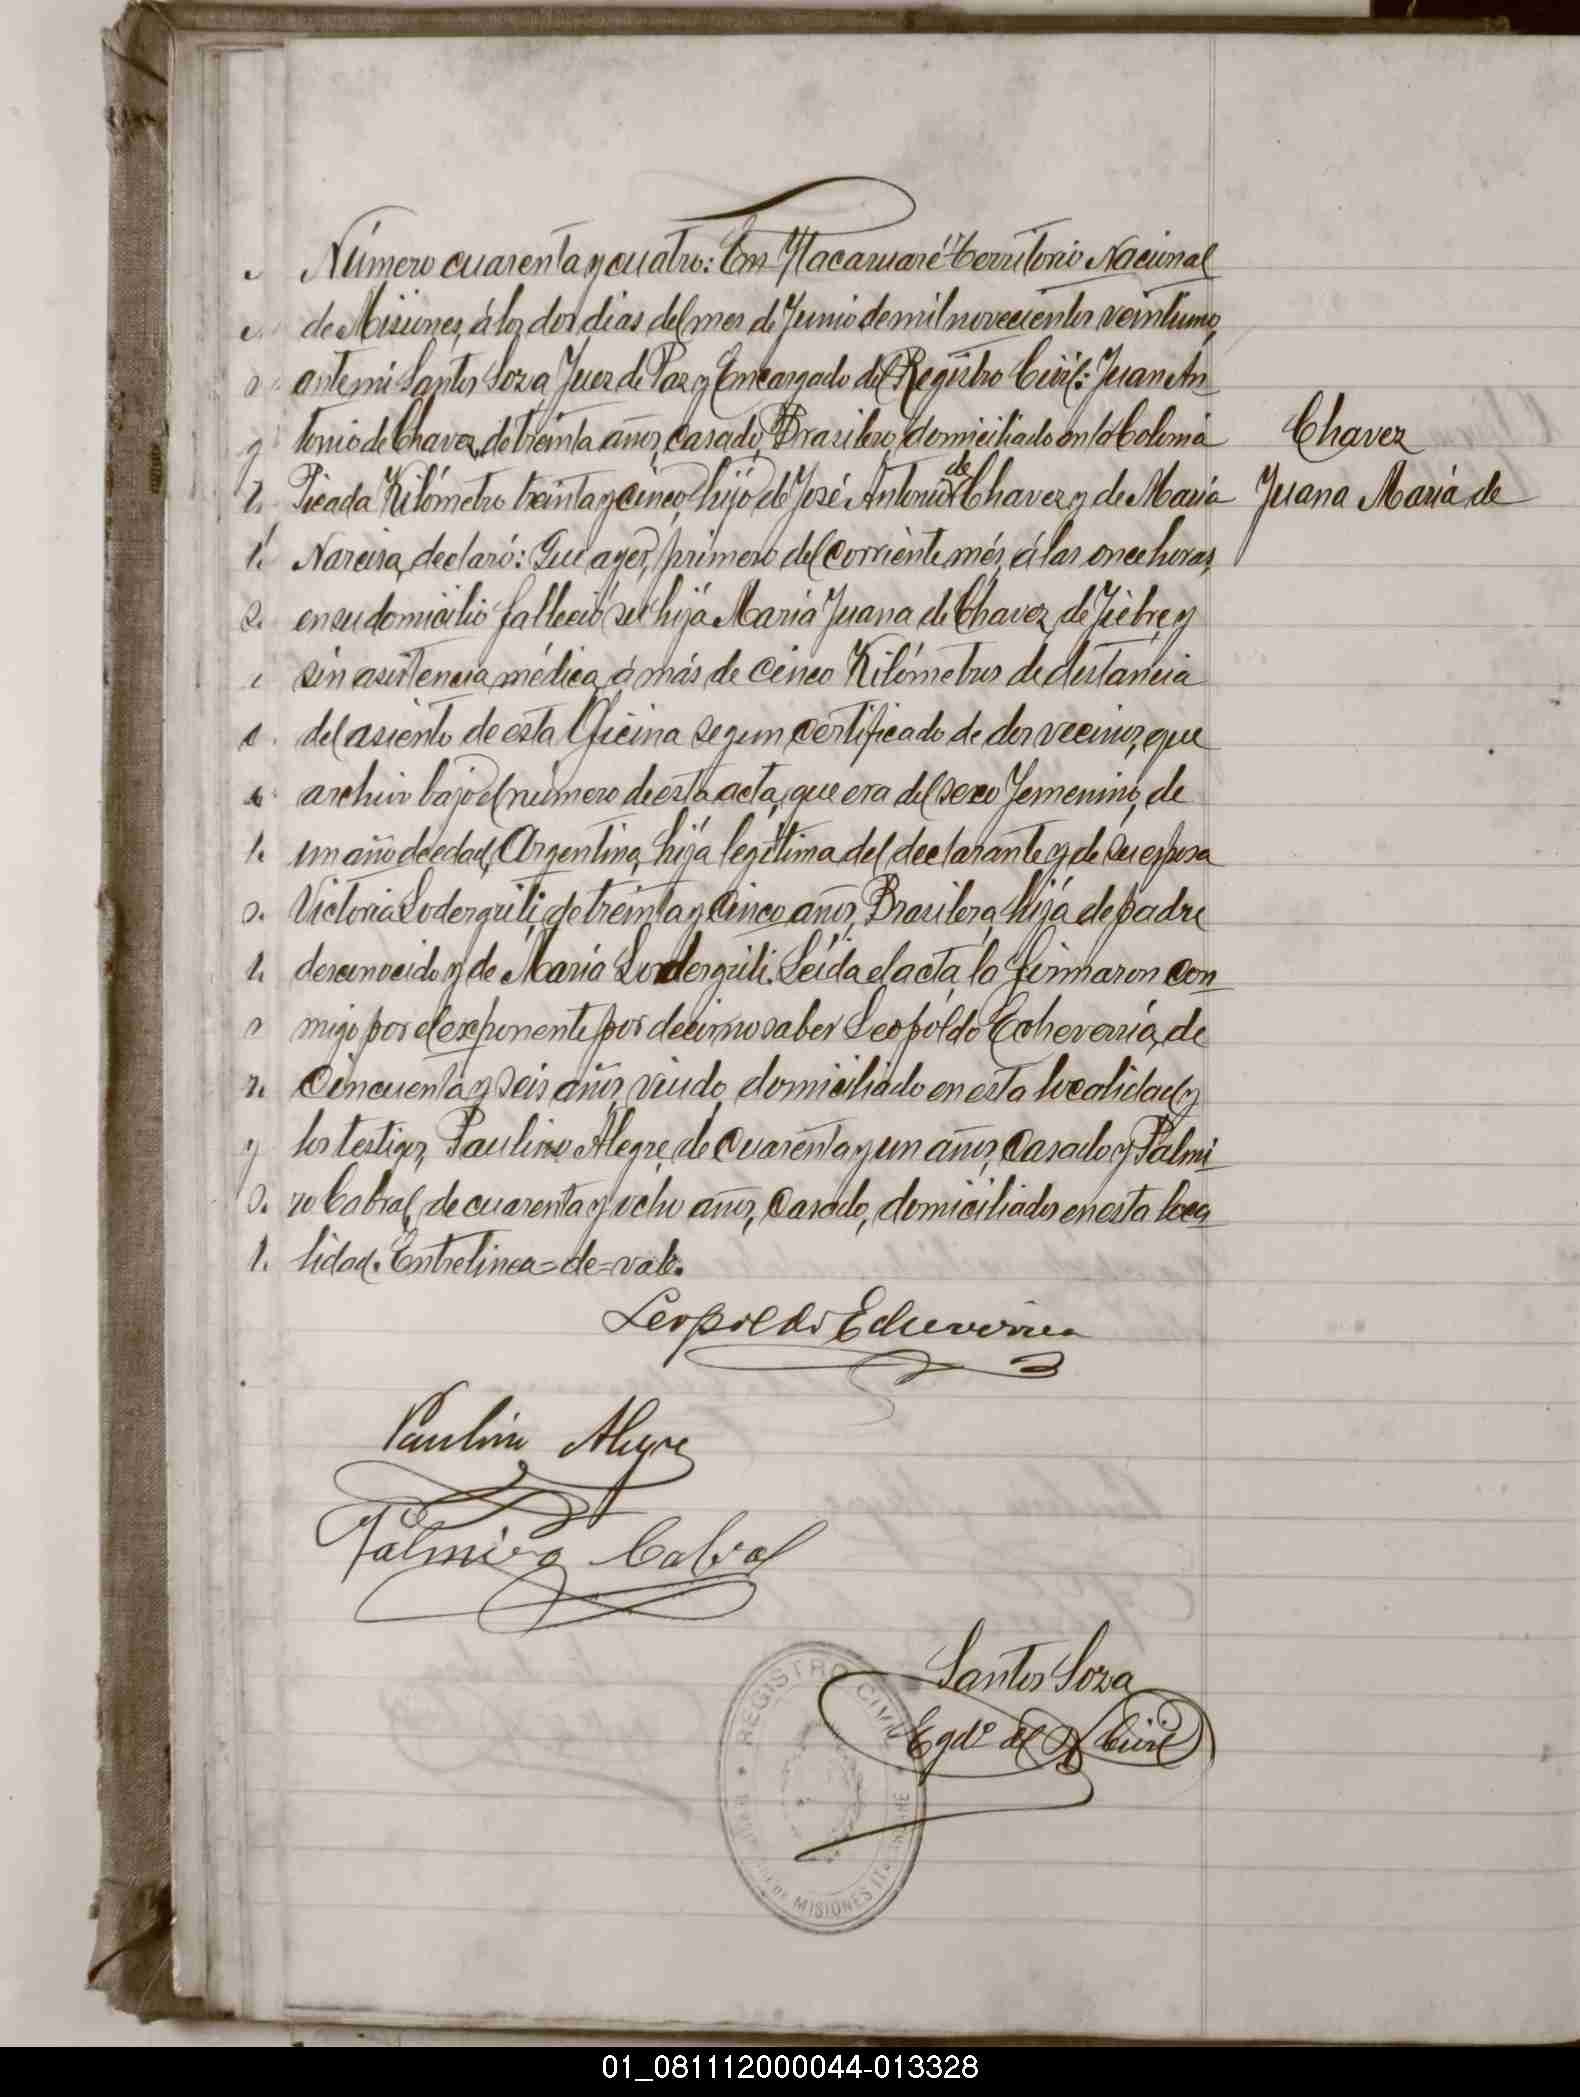 Número cuarenta y cuatro: En Itacaruaré Territorio Nacional
de Misiones, á los dos dias del mes de Junio de mil novecientos veintiuno,
ante mi Santos Soza, Juez de Paz y Encargado del Registro Civil: Juan An-
tonio de Chavez, de treinta años, casado, Brasilero, domiciliado en la Colonia
Picada Kilómetro treinta y cinco, hijo de José Antonio de Chavez y de Maria
Narcisa, declaró: Que ayer, primero del corriente més, á las once horas,
en su domicilio falleció su hija Maria Juana de Chavez, de Fiebre, y
sin asistencia médica, á más de cinco Kilómetros de distancia
del asiento de esta Oficina segun certificado de dos vecinos, que
archivo bajo el número de esta acta, que era del sexo Femenino, de
un año de edad, Argentina, hija legitima del declarante y de su esposa
Victoria Lodergrili, de treinta y cinco años, Brasilera, hija de padre
desconocido y de Maria Lodergrili. Leida el acta, la firmaron con-
migo por el exponente por decir no saber Leopóldo Echeverria, de
cincuenta y seis años, viudo, domiciliado en esta localidad y
los testigos, Paulino Alegre, de cuarenta y un años, casado y Palmi-
ro Cabral, de cuarenta y ocho años, casado, domiciliados en esta loca-
lidad. Entrelinea=de=vale.
Chavez
Juana Maria de
Leopoldo Echeverria
Paulino Alegre
Palmiro Cabral
Santos Soza
Egdo. del R. Civil
REGISTRO CIVIL
MISIONES
01_081112000044-013328